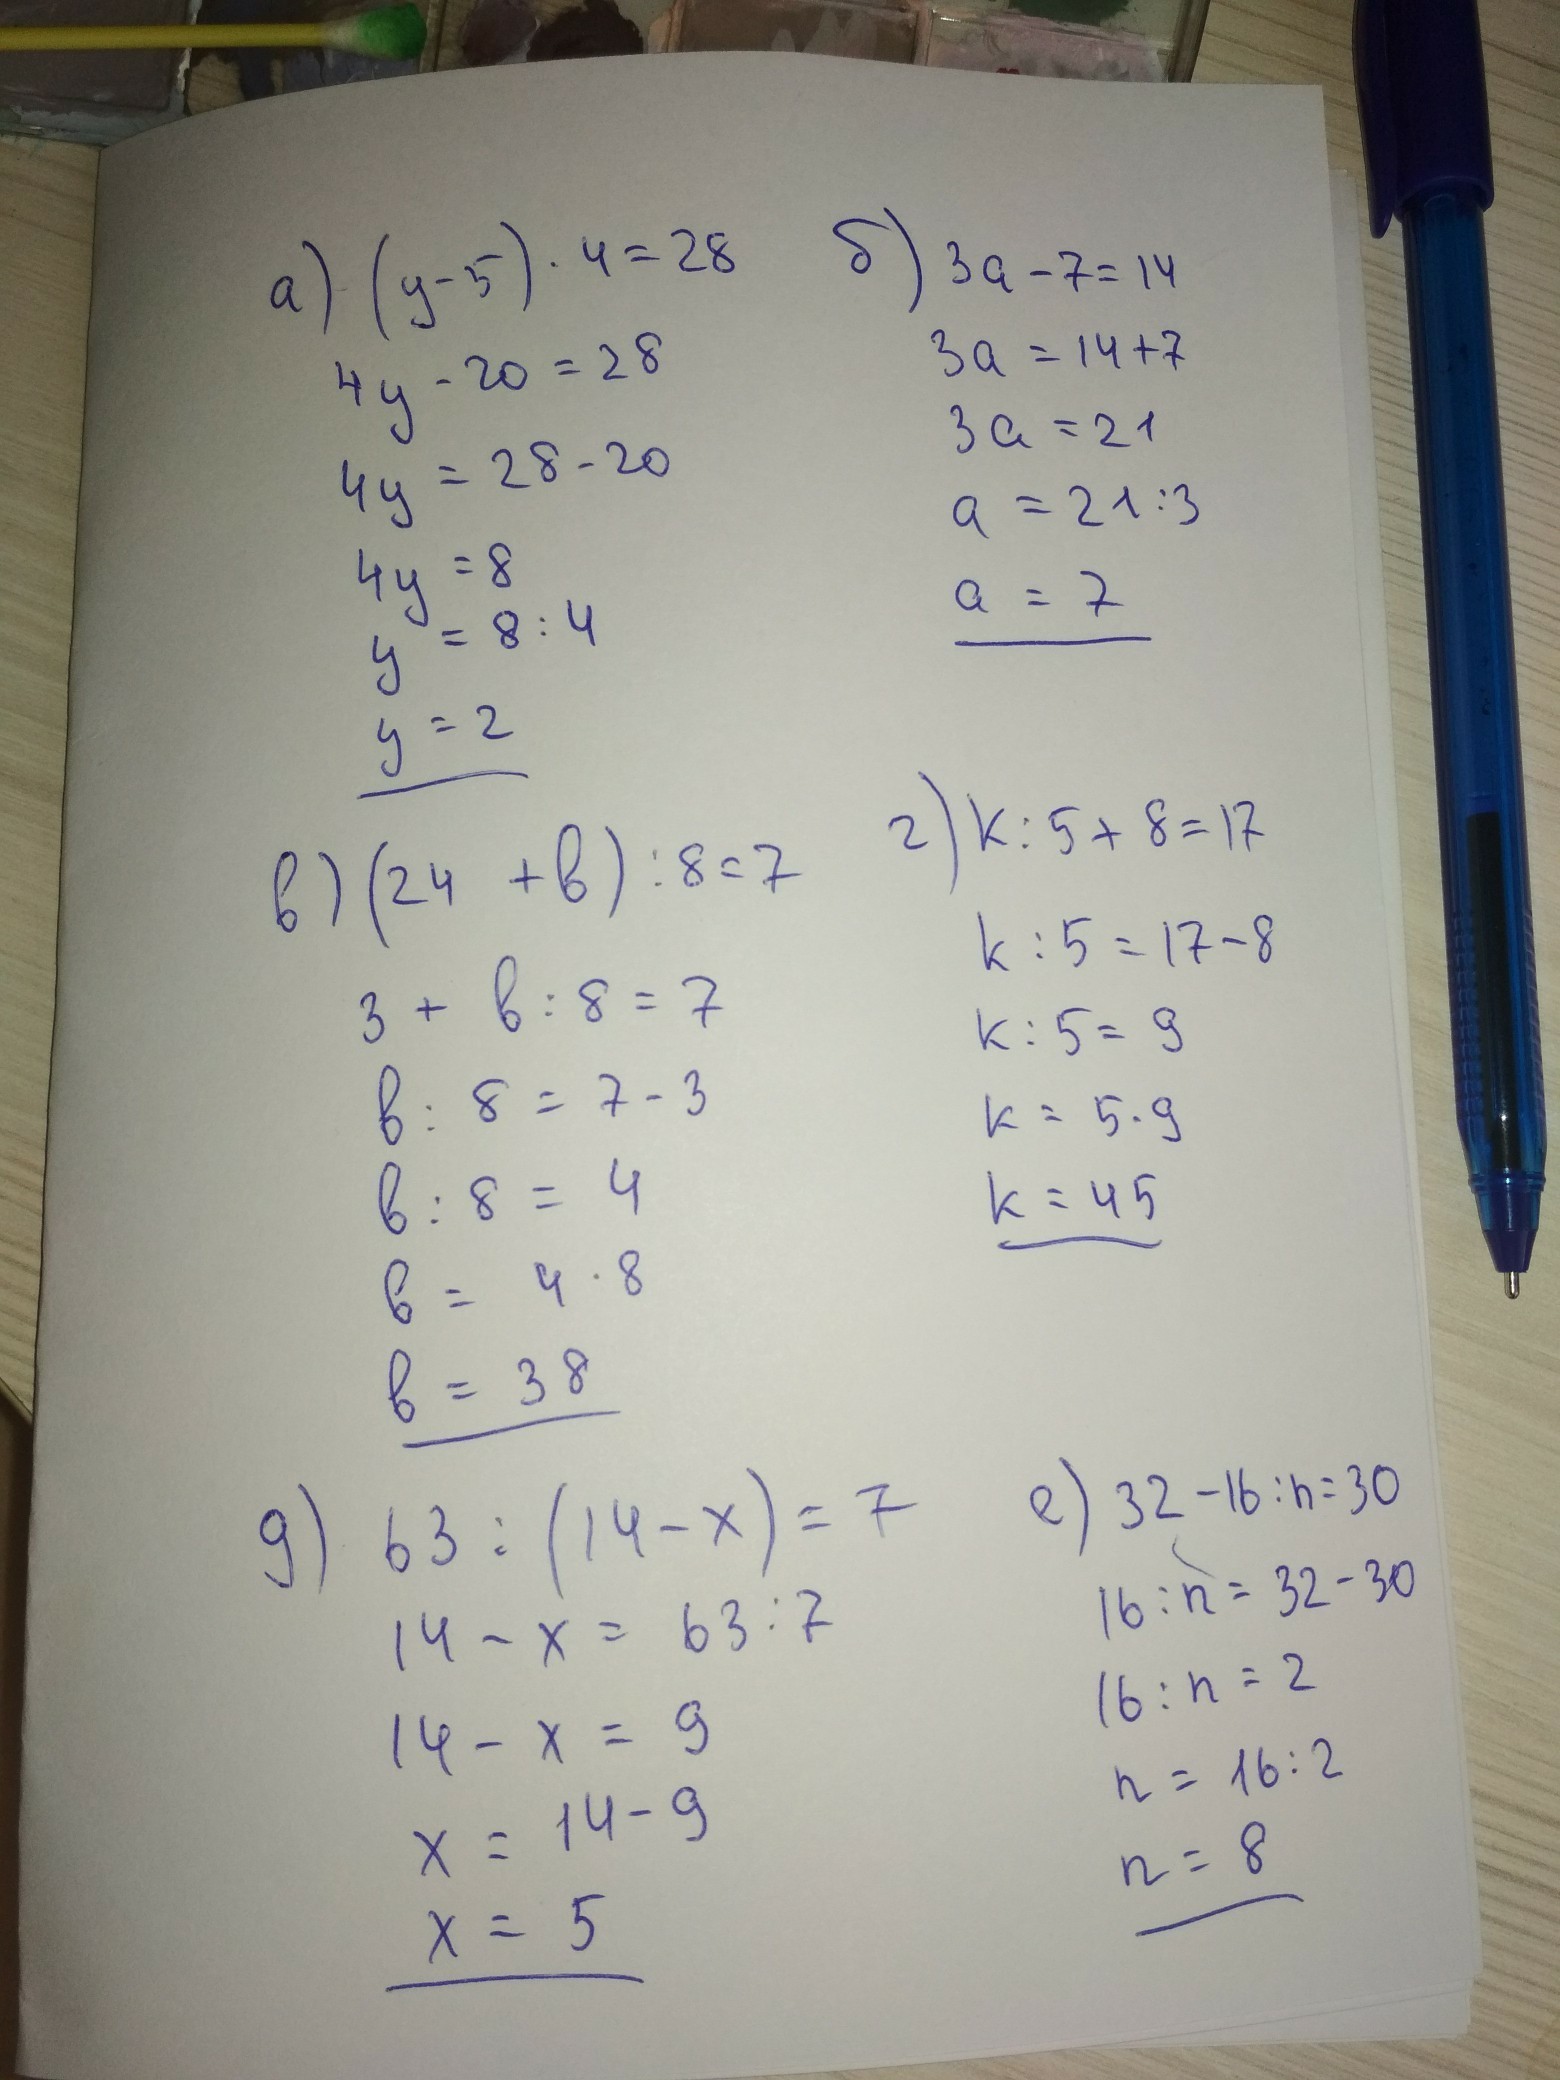 а) (y-5) · 4 = 28
4y - 20 = 28
4y = 28 - 20
4y = 8
y = 8 : 4
y = 2
б) 3a - 7 = 14
3a = 14 + 7
3a = 21
a = 21 : 3
a = 7
в) (24 + в) : 8 = 7
3 + в : 8 = 7
в : 8 = 7 - 3
в : 8 = 4
в = 4 · 8
в = 38
г) k : 5 + 8 = 17
k : 5 = 17 - 8
k : 5 = 9
k = 5 · 9
k = 45
д) 63 : (14 - x) = 7
14 - x = 63 : 7
14 - x = 9
x = 14 - 9
x = 5
е) 32 - 16 : n = 30
16 : n = 32 - 30
16 : n = 2
n = 16 : 2
n = 8